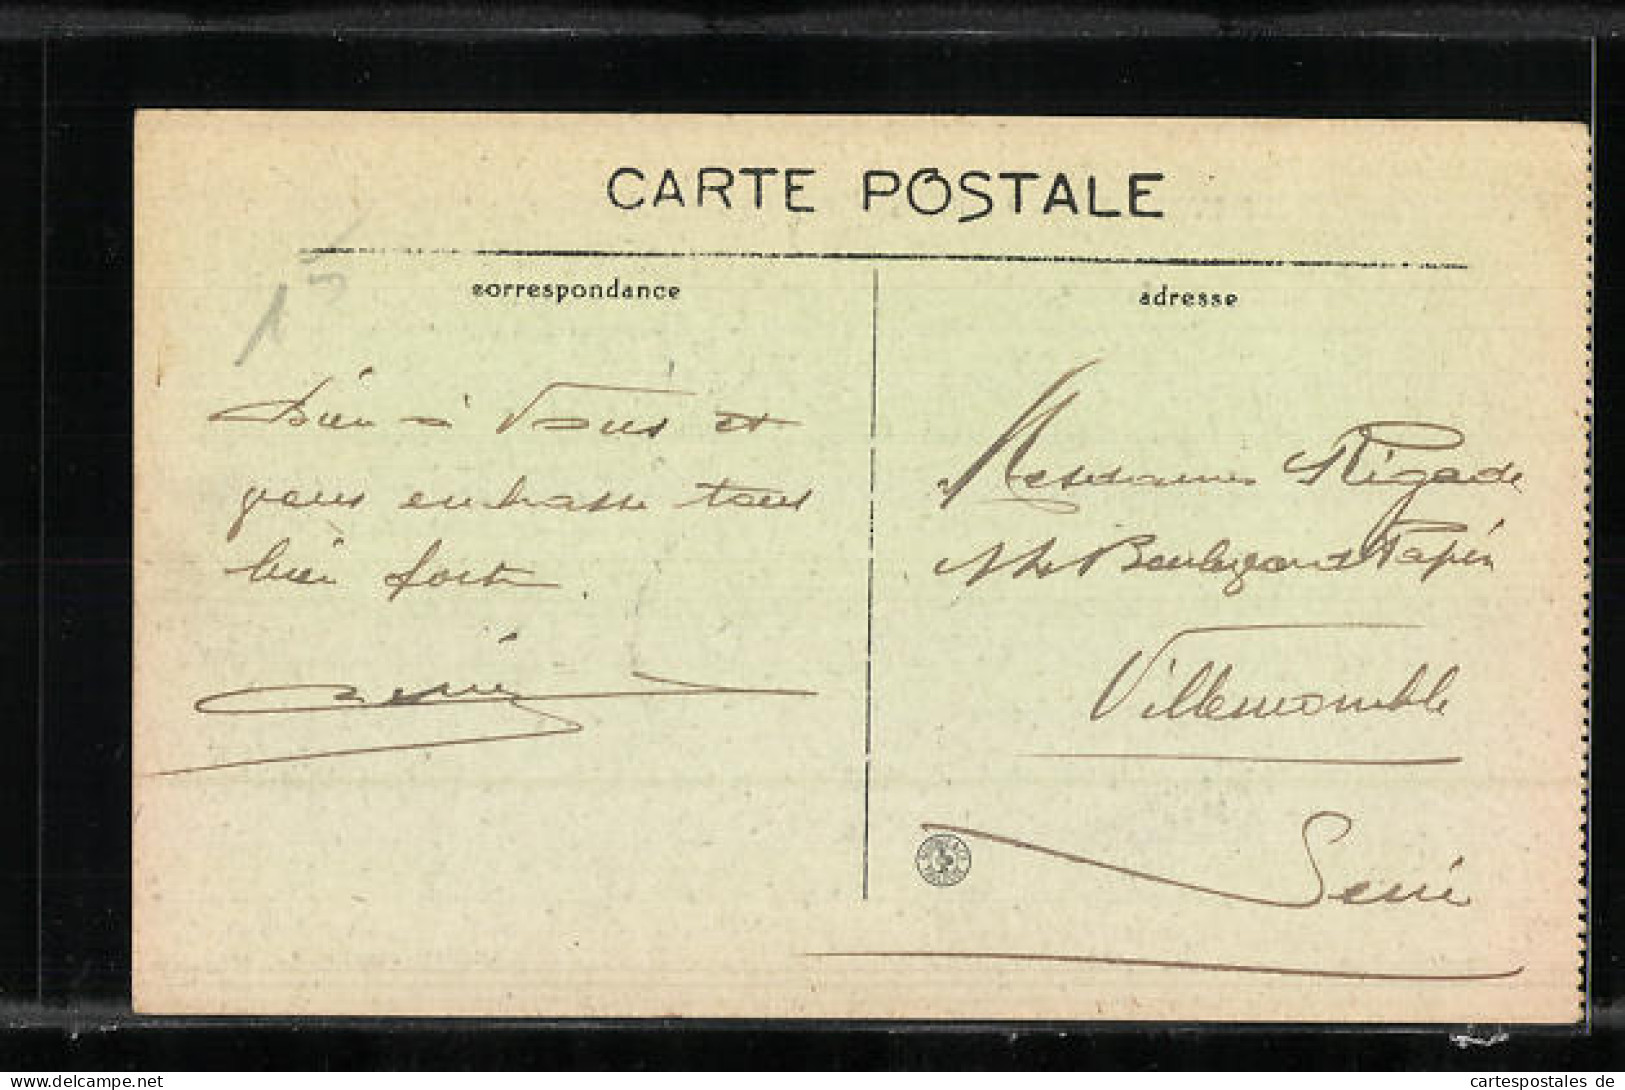 CARTE POSTALE
correspondance
adresse
Bien à Vous et
vous embrasse tous
bien fort.
Mesdames Rigade
Boulevard Papin
Villemomble
Seine
cartespostales de